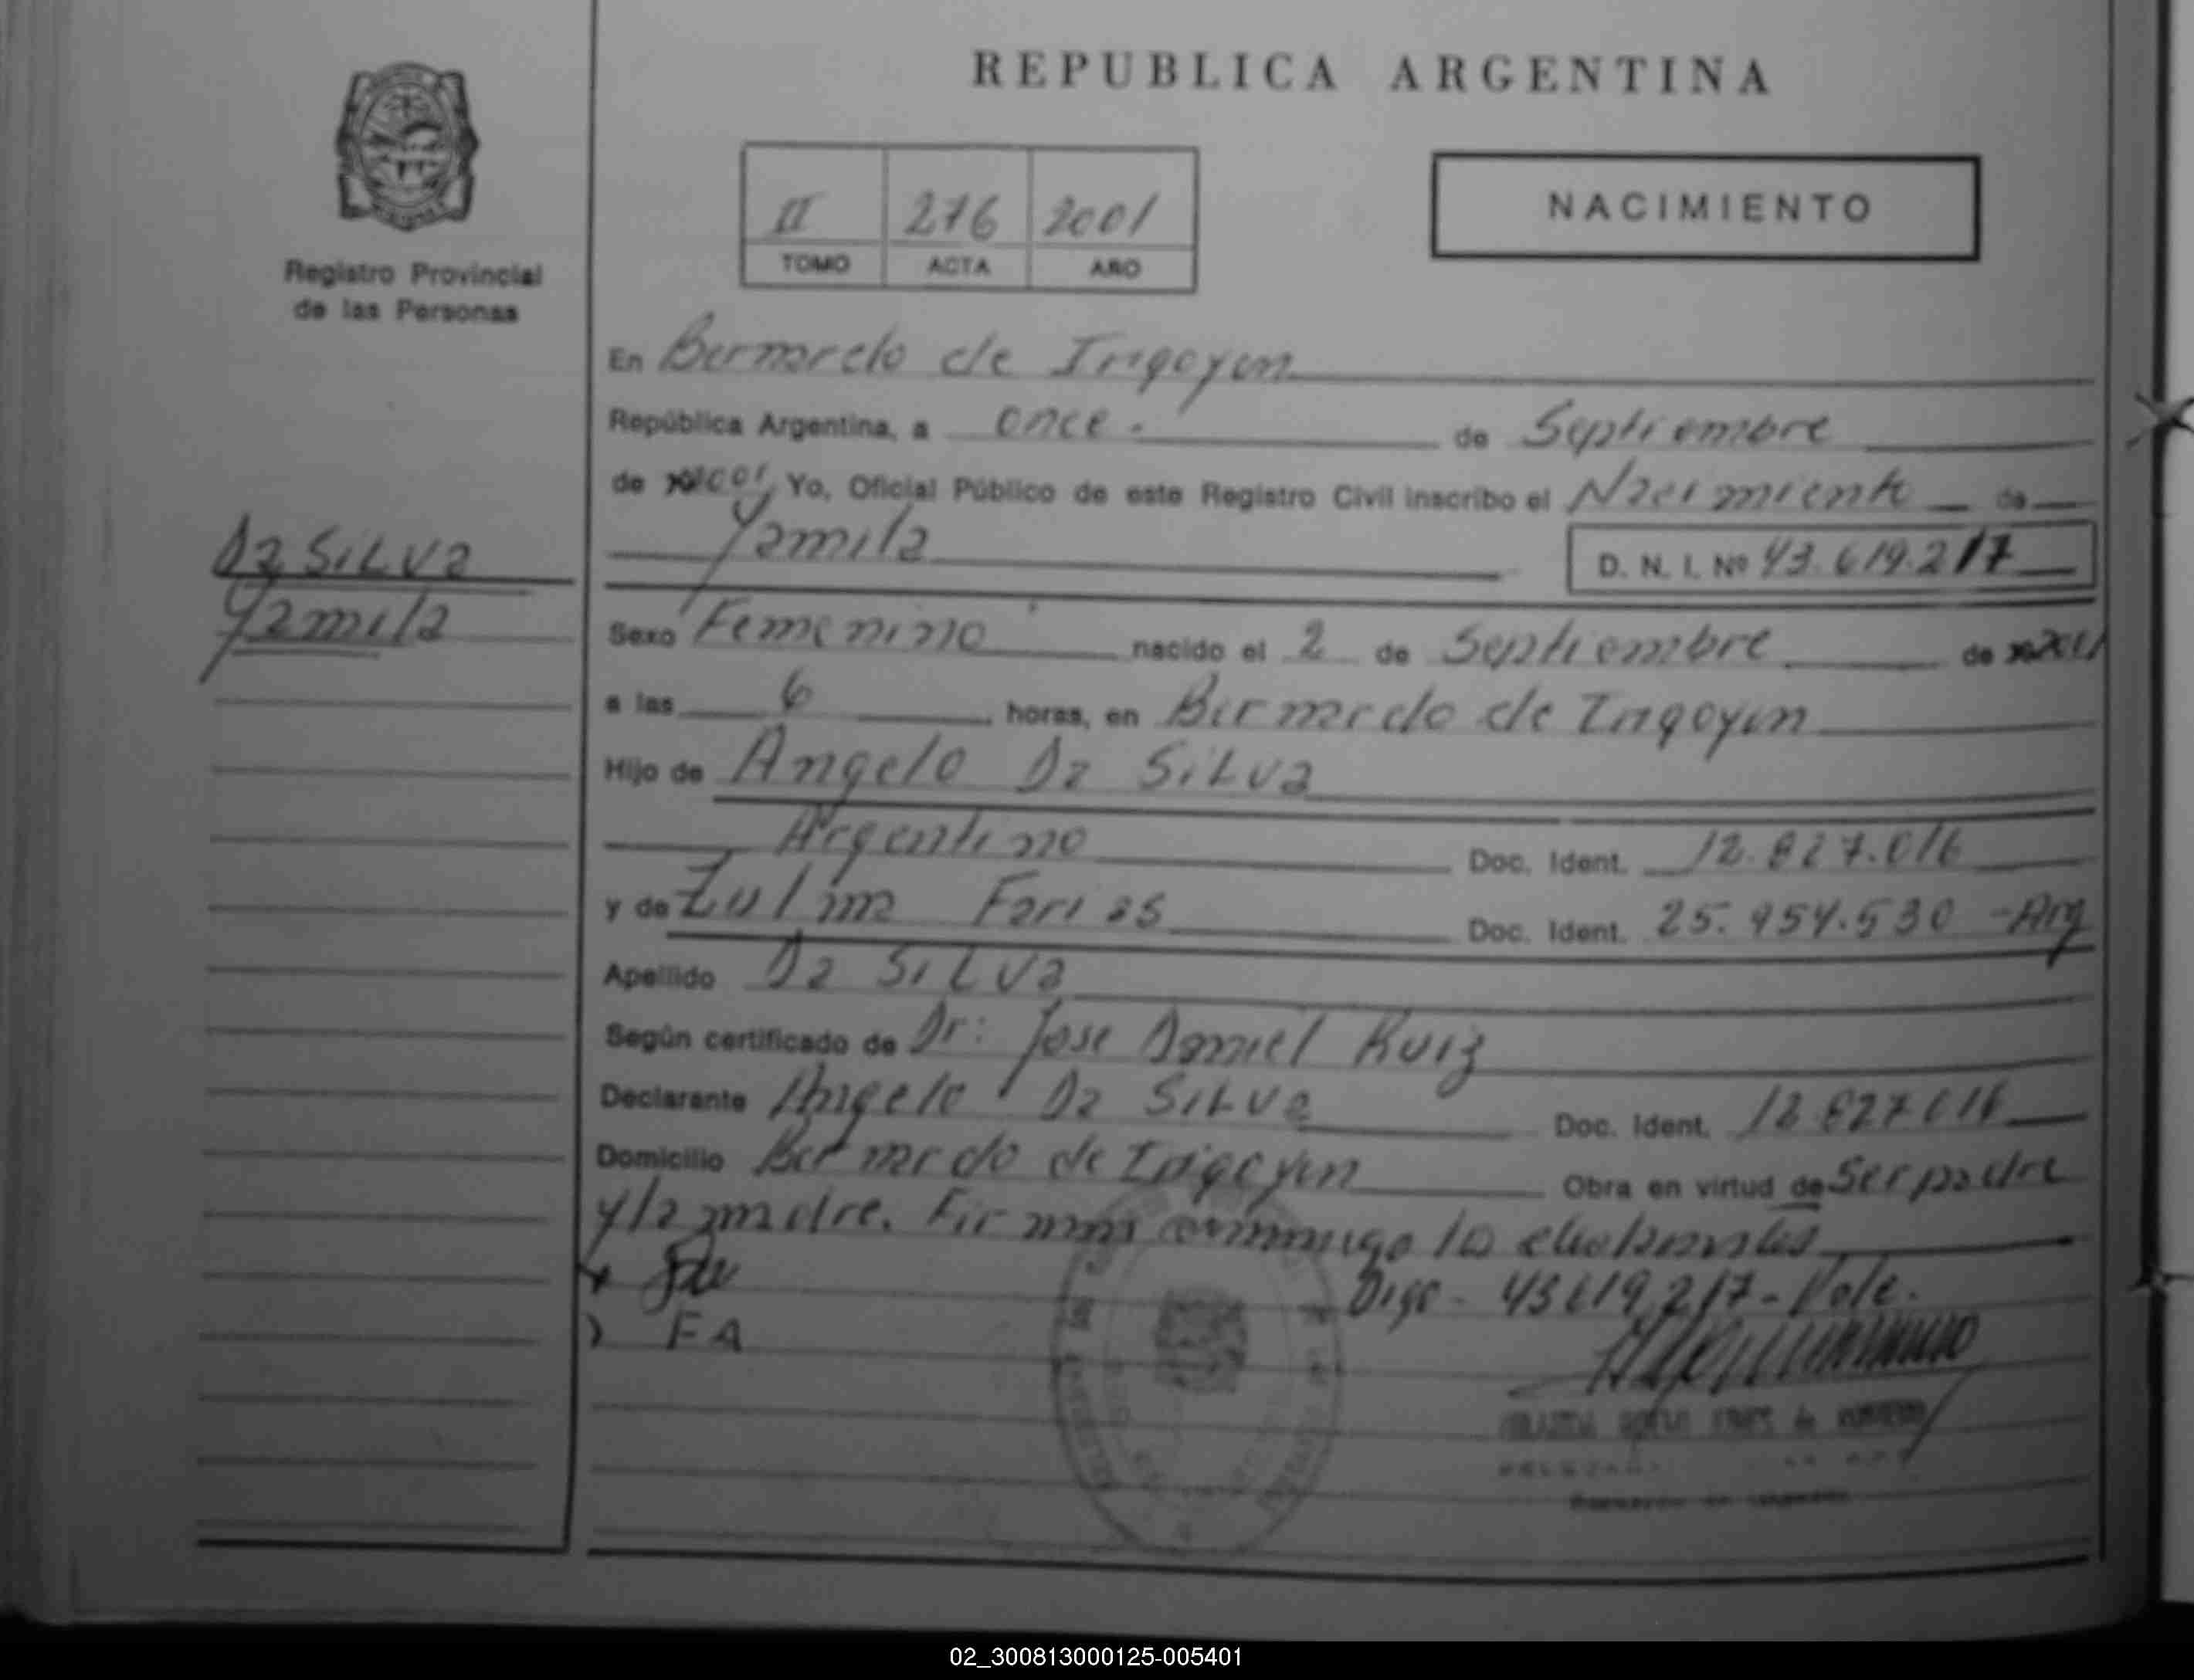 REPUBLICA ARGENTINA
II 276 2001
TOMO ACTA AÑO
NACIMIENTO
Registro Provincial
de las Personas
En Bernardo de Irigoyen
República Argentina, a once. de Septiembre
de 2001, Yo, Oficial Público de este Registro Civil inscribo el Nacimiento de
Yamila D. N. I. Nº 43.619.217
Da SiLva
Yamila
Sexo Femenino nacido el 2 de Septiembre de 2001
a las 6 horas, en Bernardo de Irigoyen
Hijo de Angelo Da SiLva
Argentino Doc. Ident. 12.827.016
y de Zulma Farias Doc. Ident. 25.954.530 - Arg
Apellido Da SiLva
Según certificado de Dr: Jose Daniel Ruiz
Declarante Angelo Da SiLva Doc. Ident. 12.827.016
Domicilio Bernardo de Irigoyen Obra en virtud de Ser padre
y la madre. Firman conmigo
FA
Digo - 43619217 - Vale.
02_300813000125-005401